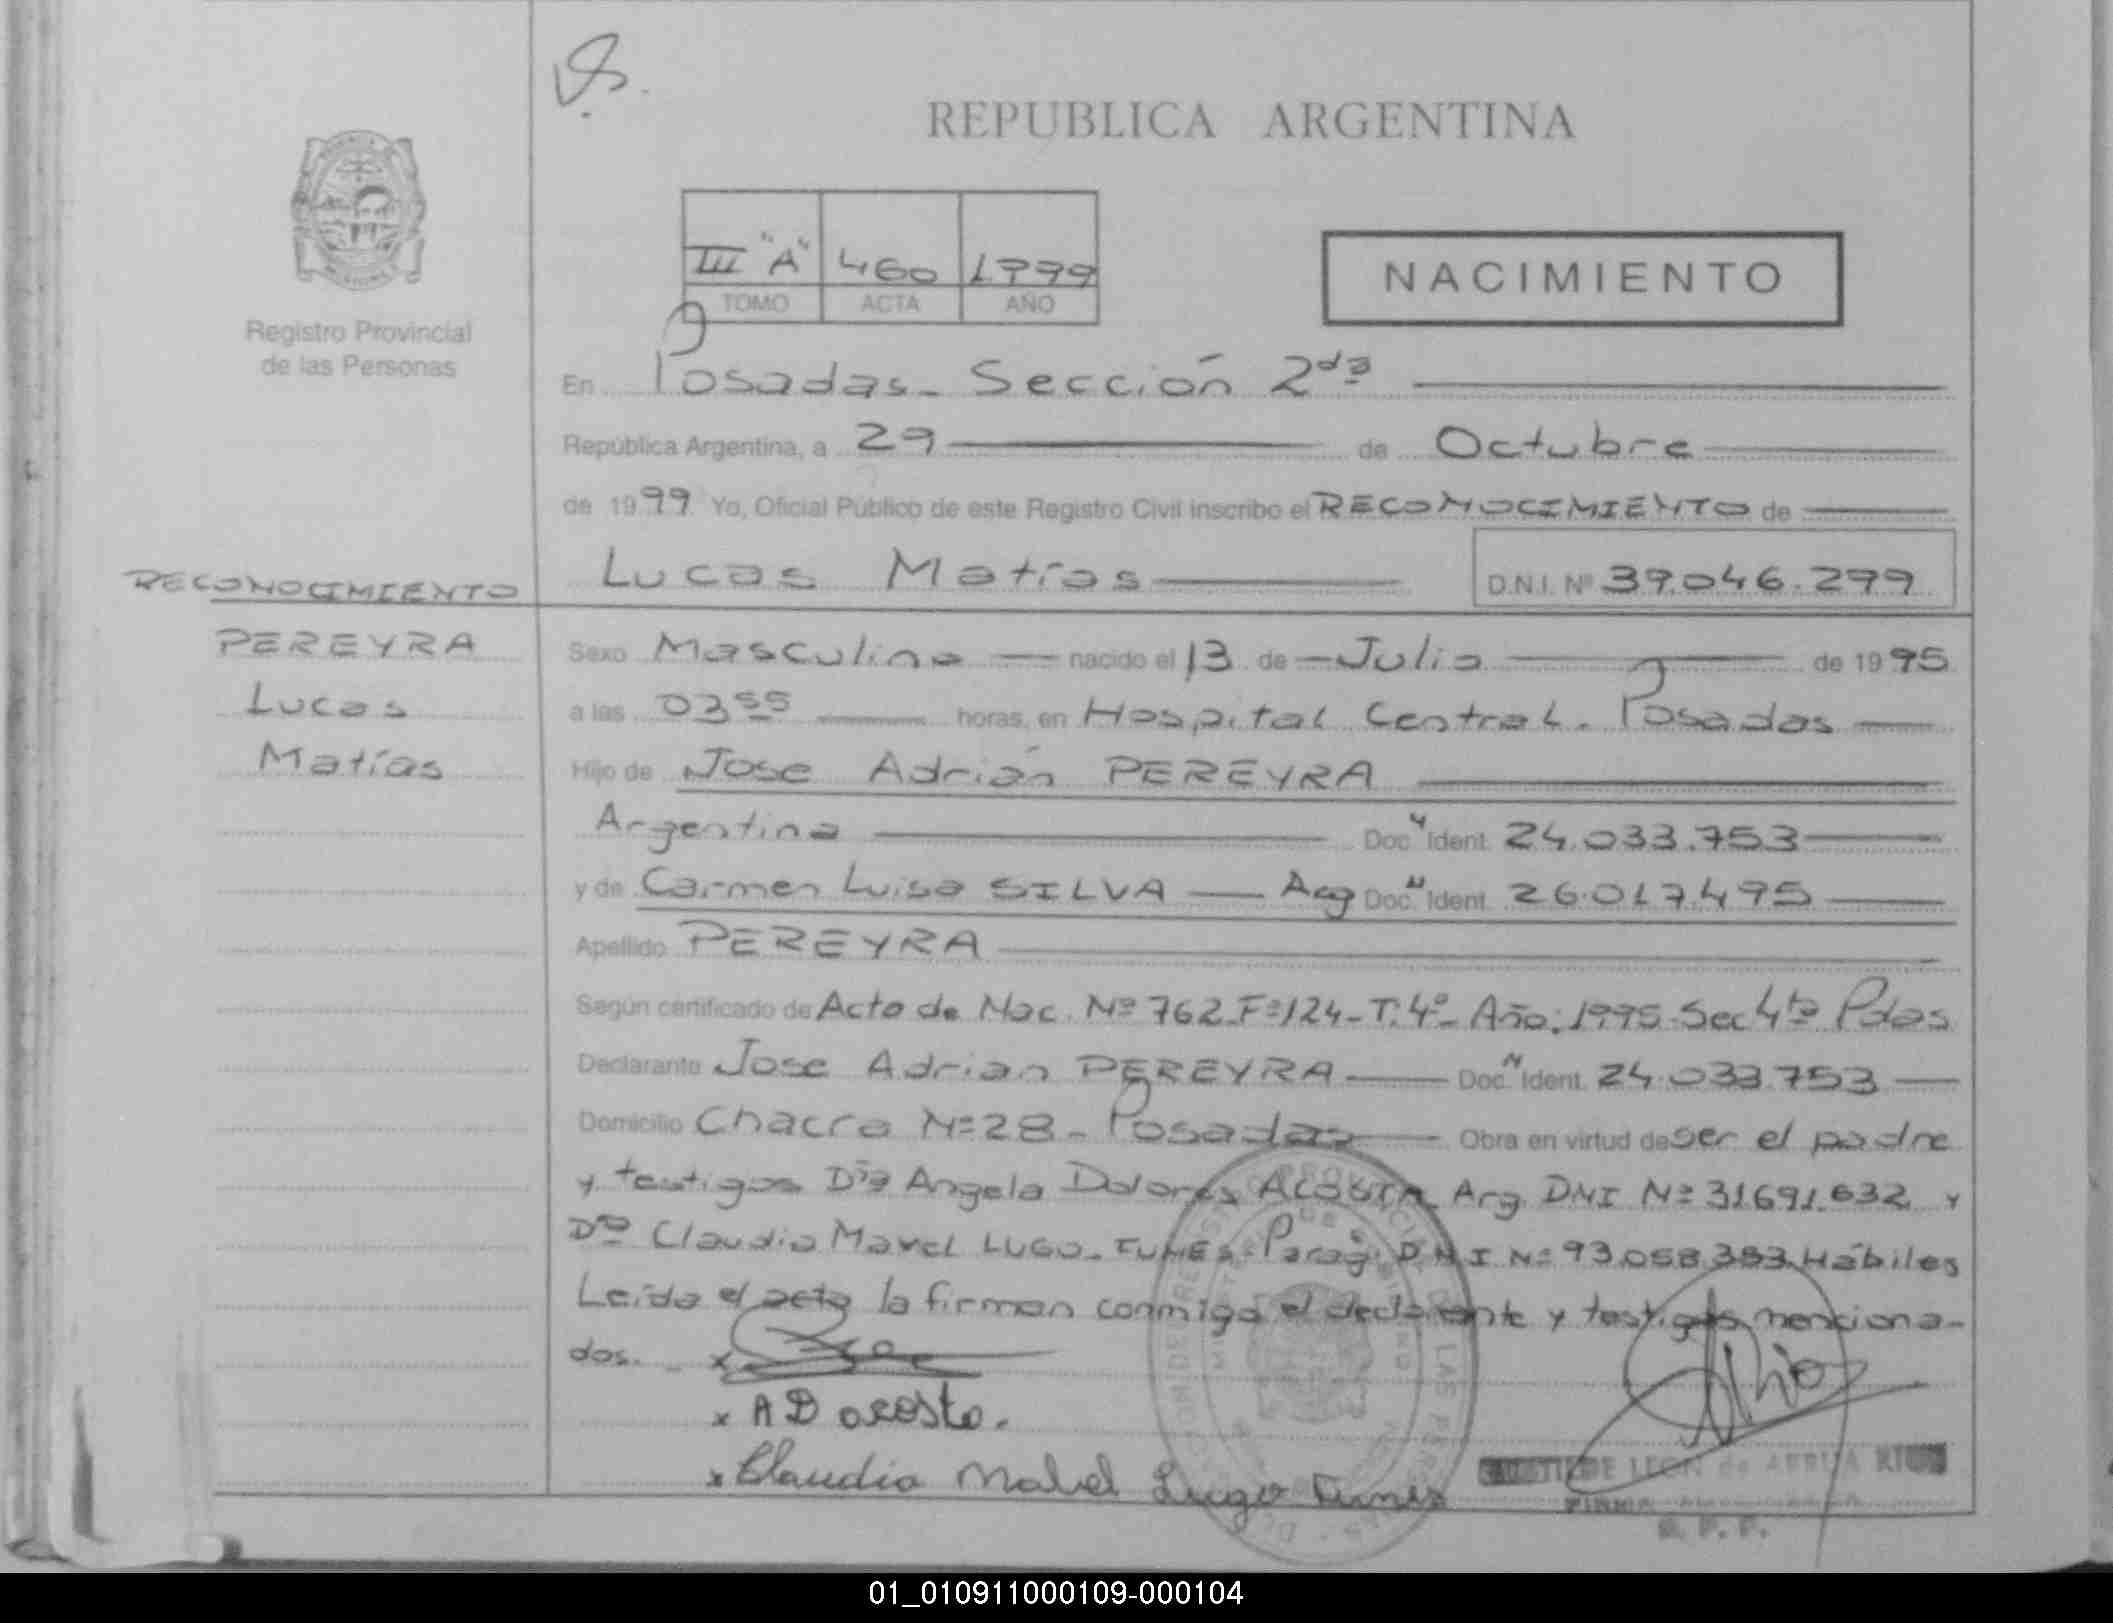 REPUBLICA ARGENTINA
III "A" 460 1999
TOMO ACTA AÑO
NACIMIENTO
Registro Provincial
de las Personas
En Posadas - Sección 2da
República Argentina, a 29 de Octubre
de 1999 Yo, Oficial Público de este Registro Civil inscribo el RECONOCIMIENTO de
Lucas Matías D.N.I. Nº 39.046.299
RECONOCIMIENTO
PEREYRA
Lucas
Matías
Sexo Masculino nacido el 13 de Julio de 1995
a las 03 55 horas, en Hospital Central. Posadas
Hijo de Jose Adrián PEREYRA
Argentina Doc. N Ident. 24.033.753
y de Carmen Luisa SILVA Arg Doc. N Ident. 26.017.495
Apellido PEREYRA
Según certificado de Acta de Nac. Nº 762 Fº 124 - T: 4º - Año: 1995 Sec 4ta Pdas
Declarante Jose Adrian PEREYRA Doc. N Ident. 24.033.753
Domicilio Chacra Nº 28 - Posadas Obra en virtud de ser el padre
y testigos Dña Angela Dolores ACOSTA Arg DNI Nº 31.691.632 y
Dña Claudia Mavel LUGO Parag. DNI Nº 93.058.383 Hábiles
Leída el acta la firman conmigo el declarante y testigos menciona-
dos.
x A D acosta.
x Claudia Mabel Lugo
LEON de
01_010911000109-000104